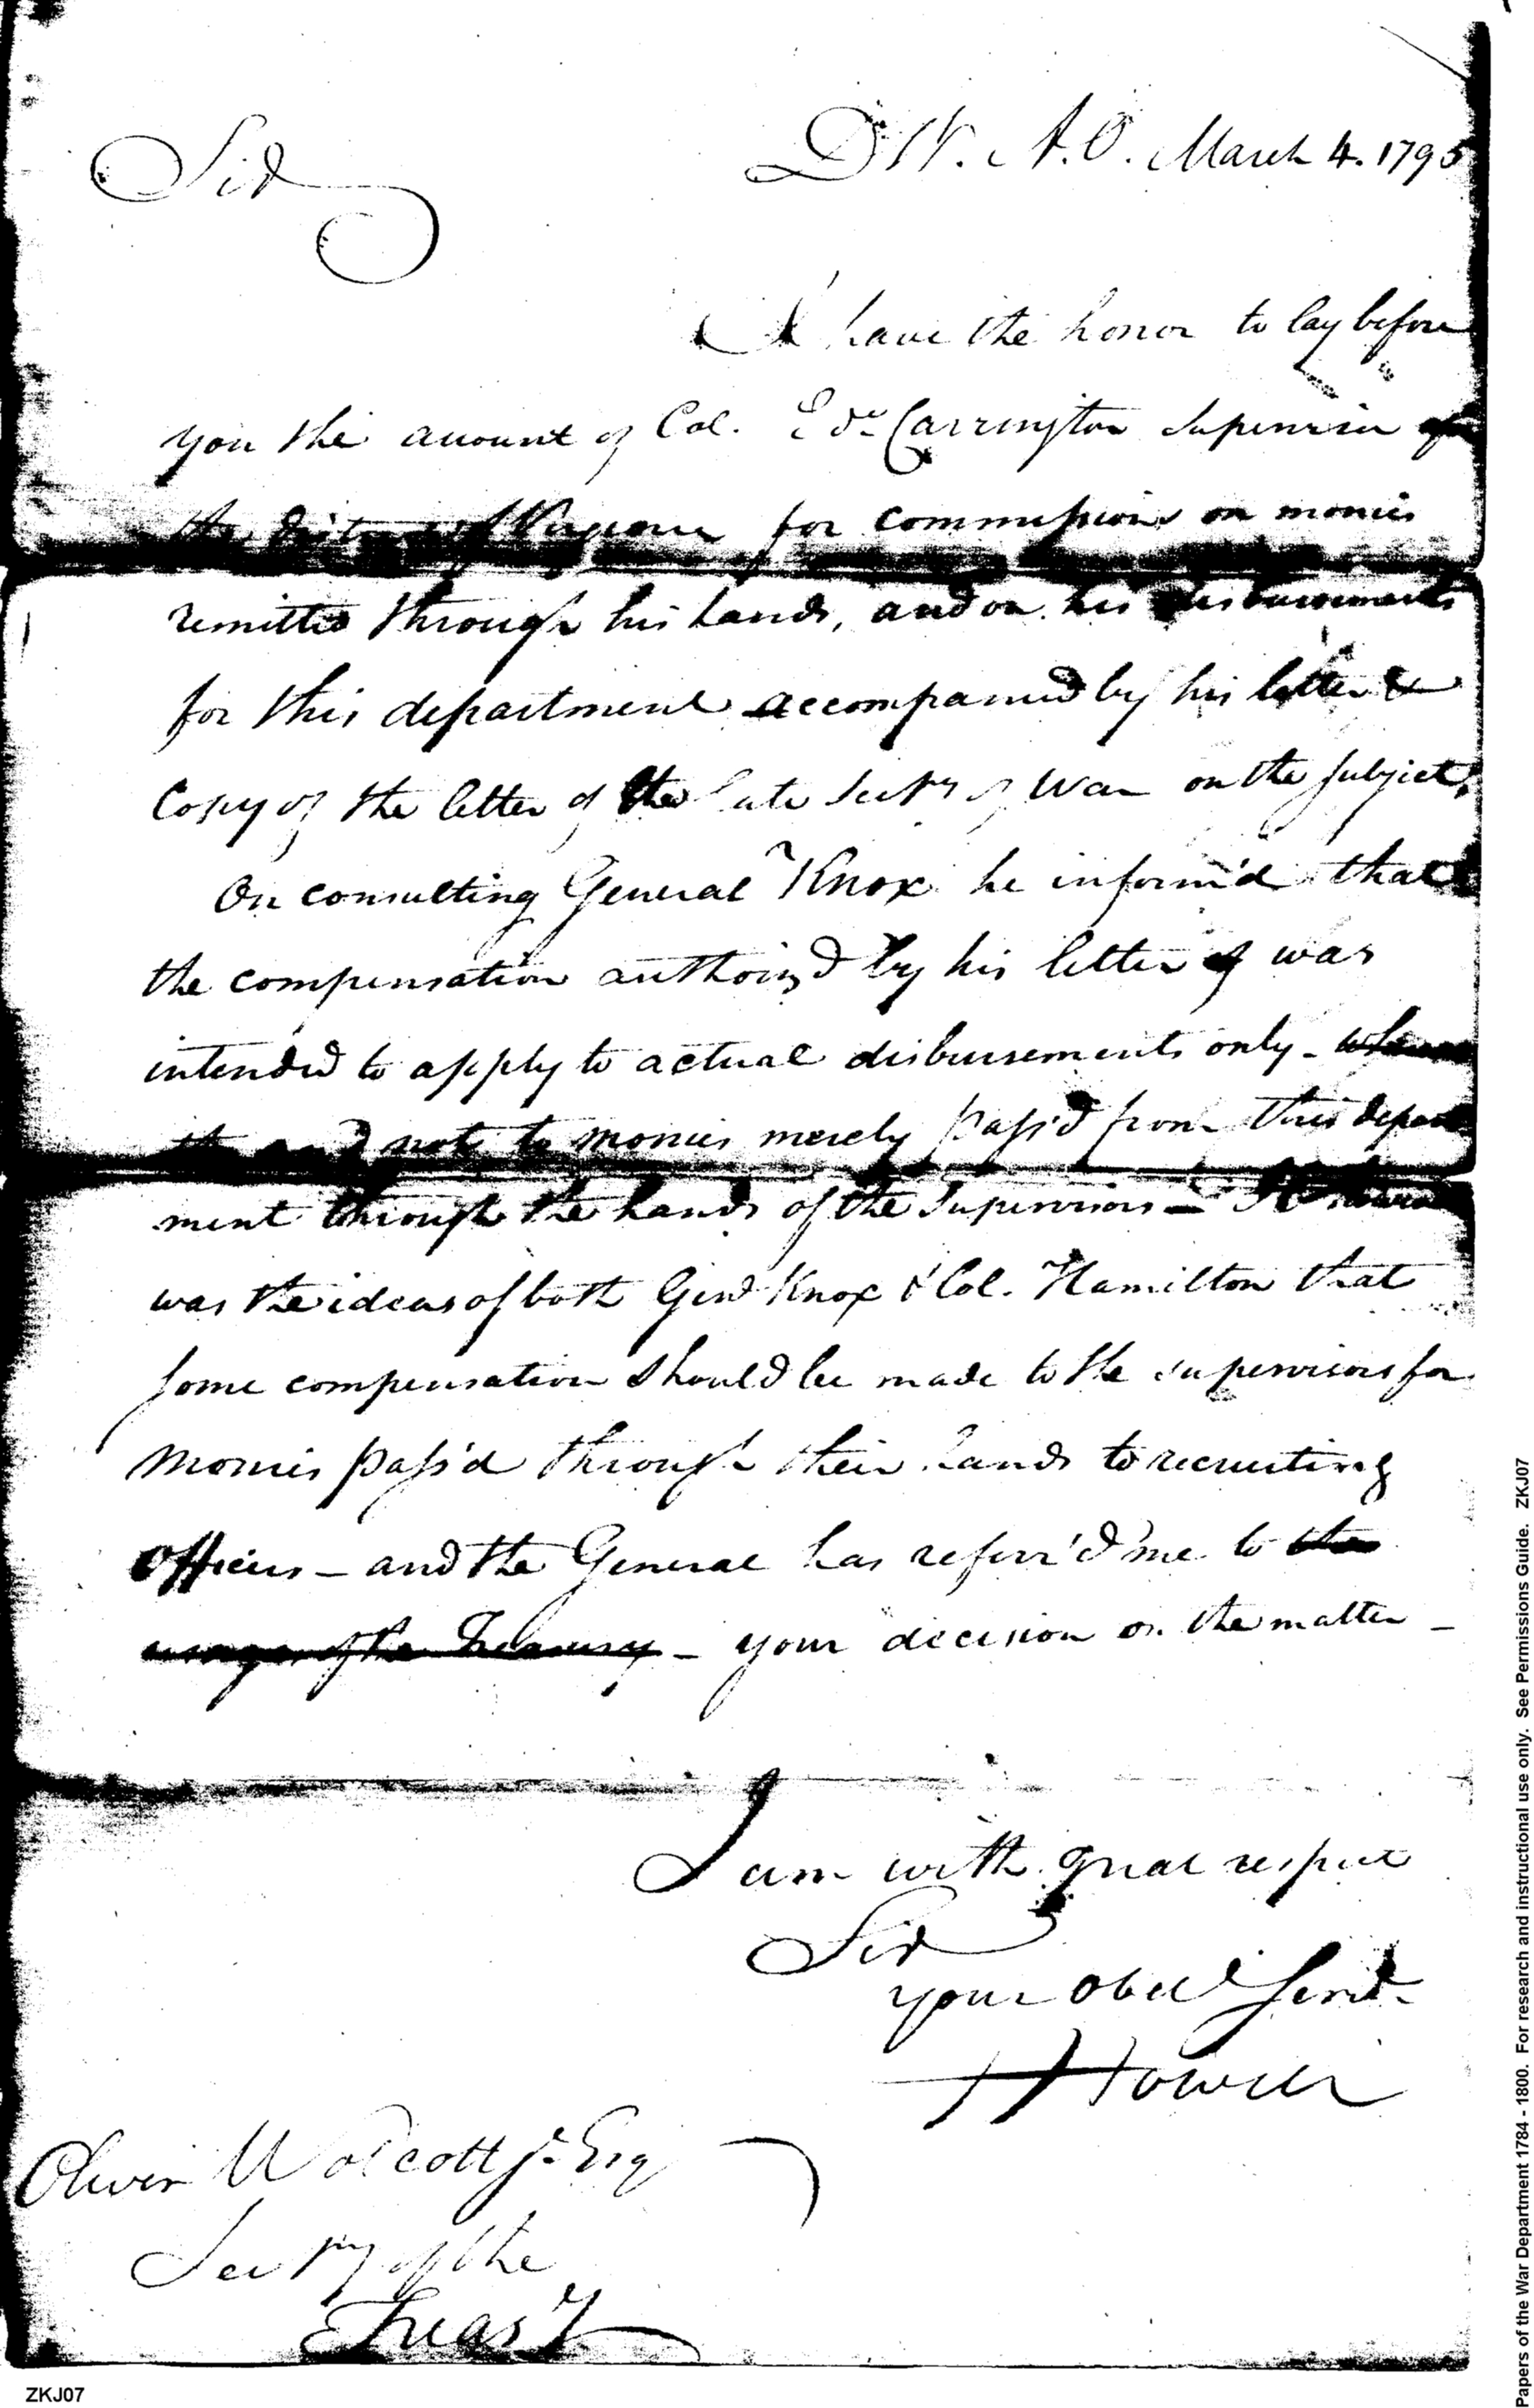 Sir
D W. A. O. March 4. 1795
I have the honor to lay before
you the amount of Col. Edw Carrington Supervisor of
the District of Virginia for commissions on monies
remitted through his hands, and on his disbursements
for this department accompanied by his letter &
Copy of the letter of the late Secty of War on the subject.
On consulting General Knox he inform'd that
the compensation authoris'd by his letter of was
intended to apply to actual disbursements only -
and not to monies merely pass'd from this depart
ment through the hands of the Supervisors - It
was the ideas of both Genl Knox & Col. Hamilton that
some compensation should be made to the supervisors for
monies pass'd through their hands to recruiting
Officers - and the General has referr'd me to the
usage of the Treasury - your decision on the matter -
I am with great respect
Sir
your obed Servt
Howell
Oliver Wolcott Jr Esq
Secrty of the
Treasy
ZKJ07
Papers of the War Department 1784 - 1800. For research and instructional use only. See Permissions Guide. ZKJ07